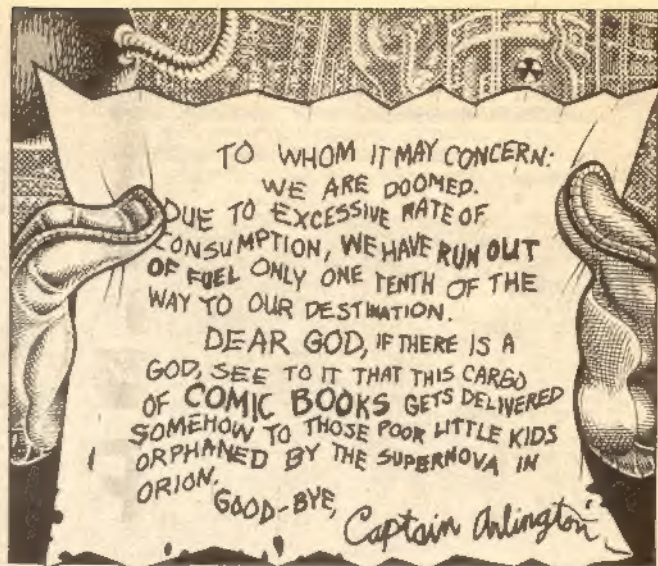 TO WHOM IT MAY CONCERN:
WE ARE DOOMED.
DUE TO EXCESSIVE RATE OF
CONSUMPTION, WE HAVE RUN OUT
OF FUEL ONLY ONE TENTH OF THE
WAY TO OUR DESTINATION.
DEAR GOD, IF THERE IS A
GOD, SEE TO IT THAT THIS CARGO
OF COMIC BOOKS GETS DELIVERED
SOMEHOW TO THOSE POOR LITTLE KIDS
ORPHANED BY THE SUPERNOVA IN
ORION.
GOOD-BYE,
Captain Arlington